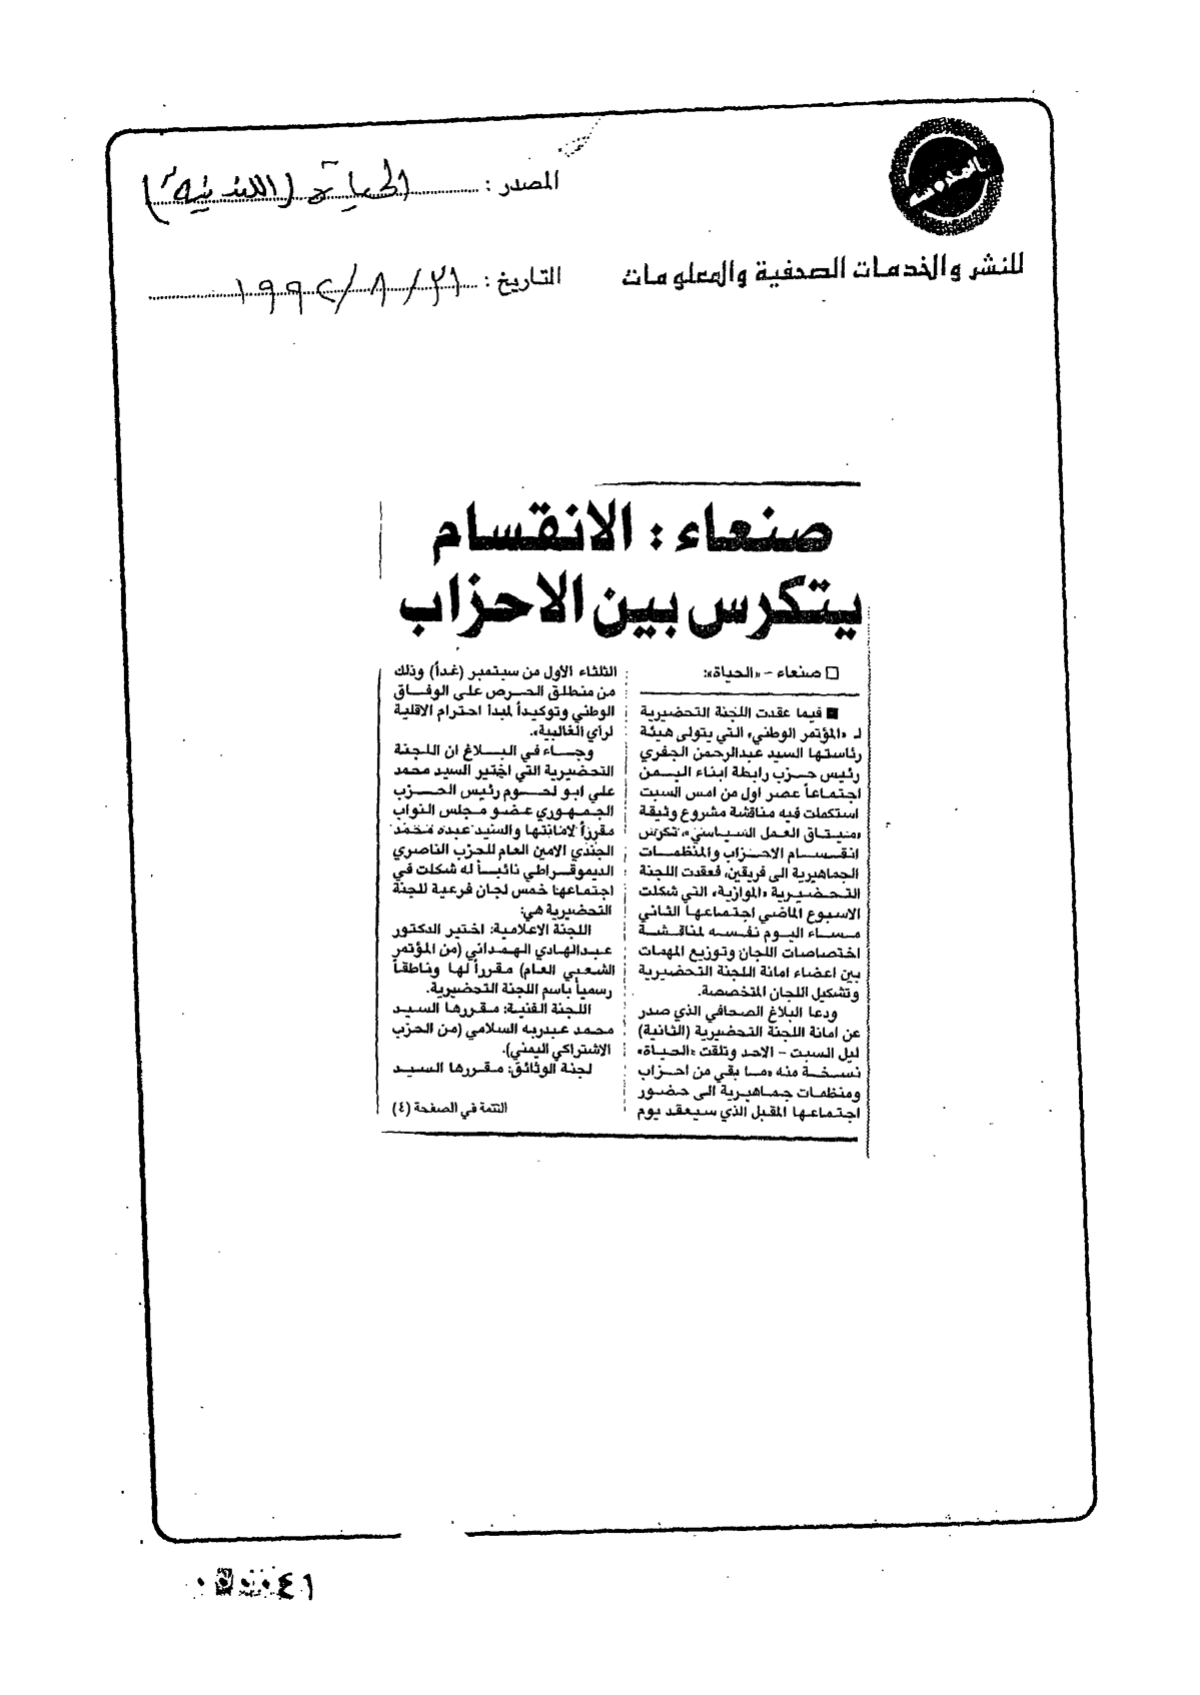 المصدر : الحياة (اللندنية)
للنشر والخدمات الصحفية والمعلومات
التاريخ : ٣١ / ٨ / ١٩٩٢
صنعاء : الانقسام
يتكرس بين الاحزاب
□ صنعاء - «الحياة»:
■ فيما عقدت اللجنة التحضيرية
لـ «المؤتمر الوطني» التي يتولى هيئة
رئاستها السيد عبدالرحمن الجفري
رئيس حزب رابطة ابناء اليمن
اجتماعاً عصر اول من امس السبت
استكملت فيه مناقشة مشروع وثيقة
«ميثاق العمل السياسي»، تكرس
انقسام الاحزاب والمنظمات
الجماهيرية الى فريقين، فعقدت اللجنة
التحضيرية «الموازية» التي شكلت
الاسبوع الماضي اجتماعها الثاني
مساء اليوم نفسه لمناقشة
اختصاصات اللجان وتوزيع المهمات
بين اعضاء امانة اللجنة التحضيرية
وتشكيل اللجان المتخصصة.
ودعا البلاغ الصحافي الذي صدر
عن امانة اللجنة التحضيرية (الثانية)
ليل السبت - الاحد وتلقت «الحياة»
نسخة منه «ما بقي من احزاب
ومنظمات جماهيرية الى حضور
اجتماعها المقبل الذي سيعقد يوم
الثلثاء الاول من سبتمبر (غداً) وذلك
من منطلق الحرص على الوفاق
الوطني وتوكيداً لمبدأ احترام الاقلية
لرأي الغالبية».
وجاء في البلاغ ان اللجنة
التحضيرية التي اختير السيد محمد
علي ابو لحوم رئيس الحزب
الجمهوري عضو مجلس النواب
مقرراً لامانتها والسيد عبده محمد
الجندي الامين العام للحزب الناصري
الديموقراطي نائباً له شكلت في
اجتماعها خمس لجان فرعية للجنة
التحضيرية هي:
اللجنة الاعلامية: اختير الدكتور
عبدالهادي الهمداني (من المؤتمر
الشعبي العام) مقرراً لها وناطقاً
رسمياً باسم اللجنة التحضيرية.
اللجنة الفنية: مقررها السيد
محمد عبدربه السلامي (من الحزب
الاشتراكي اليمني).
لجنة الوثائق: مقررها السيد
التتمة في الصفحة (٤)